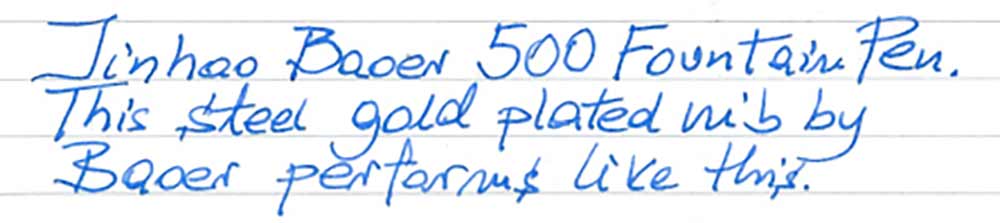 Jinhao Baoer 500 Fountain Pen.
This steel gold plated nib by
Baoer performs like this.